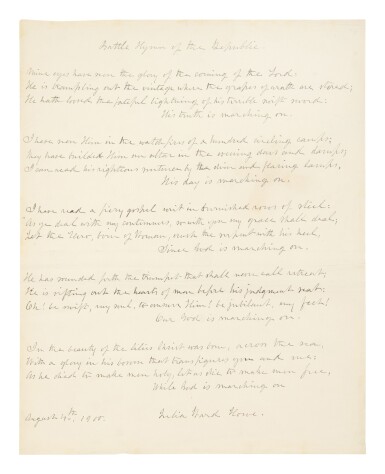 Battle Hymn of the Republic.
Mine eyes have seen the glory of the coming of the Lord:
He is trampling out the vintage where the grapes of wrath are stored;
He hath loosed the fateful lightning of his terrible swift sword:
His truth is marching on.
I have seen Him in the watch-fires of a hundred circling camps;
They have builded Him an altar in the evening dews and damps;
I can read his righteous sentence by the dim and flaring lamps,
His day is marching on.
I have read a fiery gospel writ in burnished rows of steel:
"As ye deal with my contemners, so with you my grace shall deal;
Let the Hero, born of Woman, crush the serpent with his heel,
Since God is marching on.
He has sounded forth the trumpet that shall never call retreat;
He is sifting out the hearts of men before his judgment seat:
Oh! be swift, my soul, to answer Him! be jubilant, my feet!
Our God is marching on.
In the beauty of the lilies Christ was born, across the sea,
With a glory in his bosom that transfigures you and me:
As he died to make men holy, let us die to make men free,
While God is marching on
August 4th, 1908.
Julia Ward Howe.